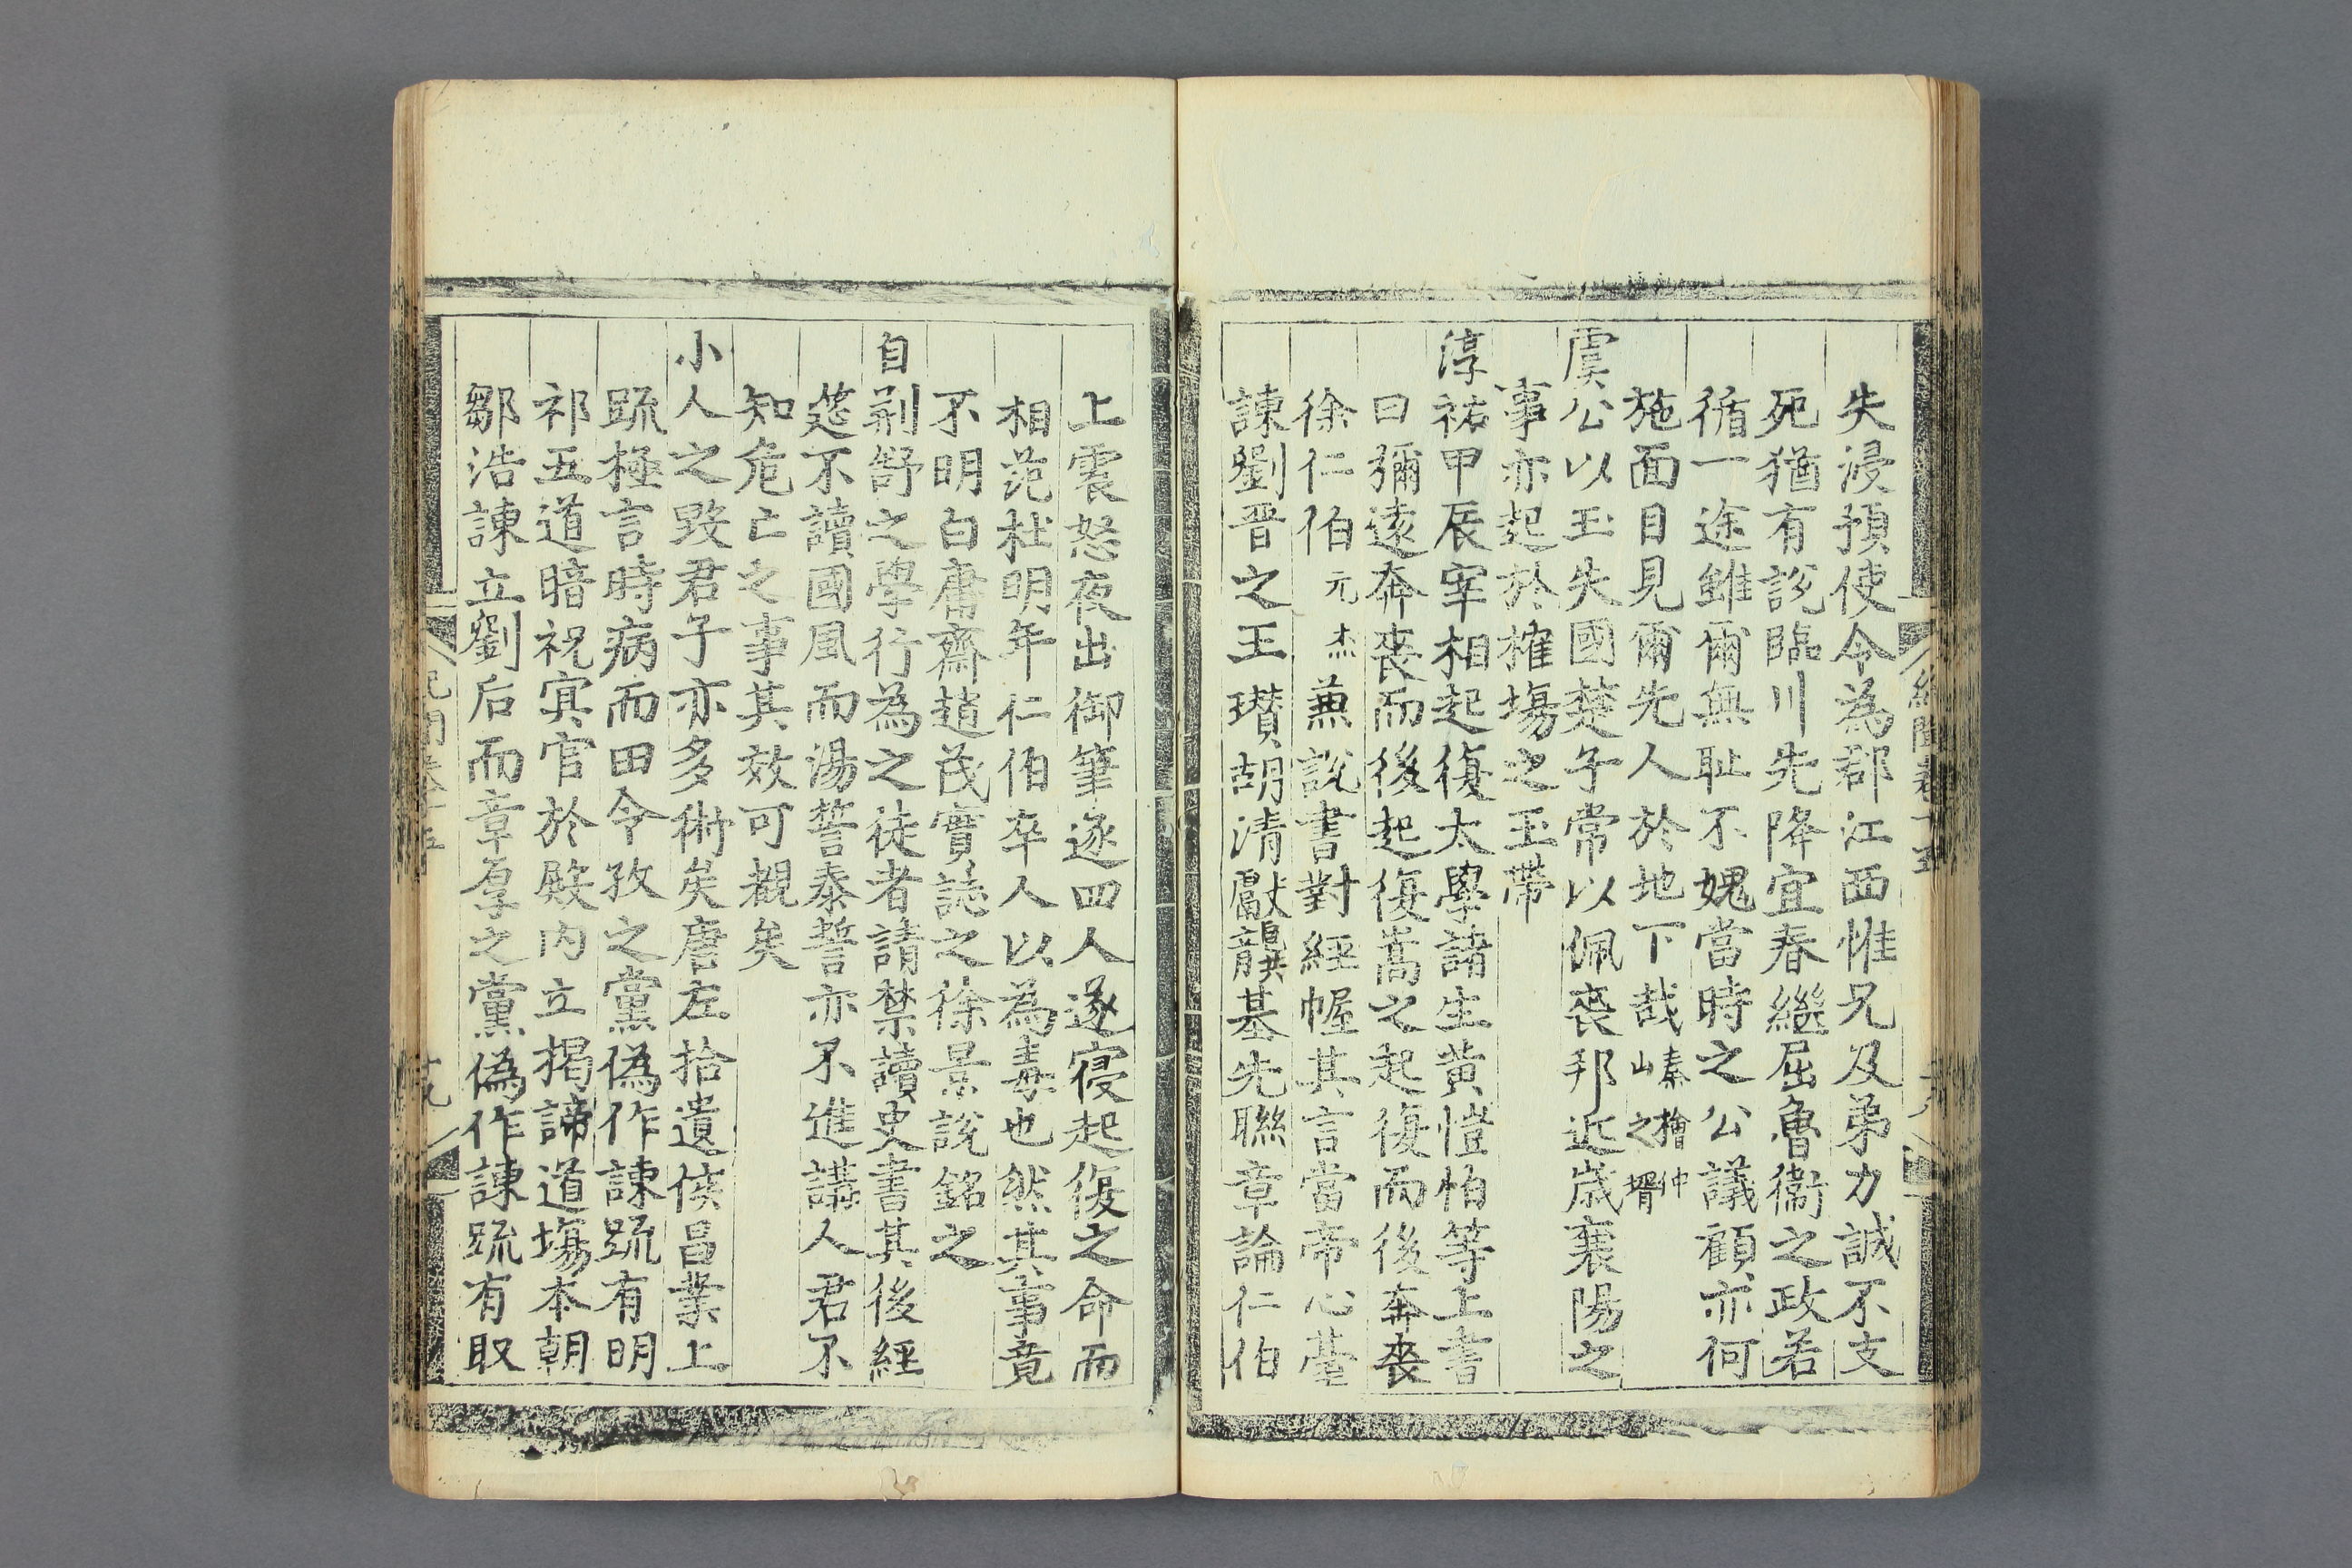 失浸預使令為郡江西惟兄及弟力誠不支
死猶有說臨川先降宜春繼屈魯衞之政若
循一途雖爾無耻不媿當時之公議顧亦何
施面目見爾先人於地下哉嵊之壻秦檜仲
虞公以玉失國楚子常以佩喪邦近歳襄陽之
事亦起於搉塲之玉帶
淳祐甲辰宰相起復太學諸生黃愷伯等上書
曰彌遠奔喪而後起復嵩之起復而後奔喪
徐仁伯元杰兼說書對經幄其言當帝心臺
諫劉晋之王瓚胡清獻龔基先聯章論仁伯
上震怒夜出御筆逐四人遂寢起復之命而
相范杜明年仁伯卒人以為毒也然其事竟
不明白庸齋趙茂實誌之徐景說銘之
自荆舒之學行為之徒者請禁讀史書其後經
筵不讀國風而湯誓泰誓亦不進講人君不
知危亡之事其效可覩矣
小人之毀君子亦多術矣唐左拾遺侯昌業上
䟽極言時病而田令孜之黨偽作諫䟽有明
祁五道暗祝㝠官於殿内立揭諦道塲本朝
鄒浩諫立劉后而章厚之黨偽作諫䟽有取